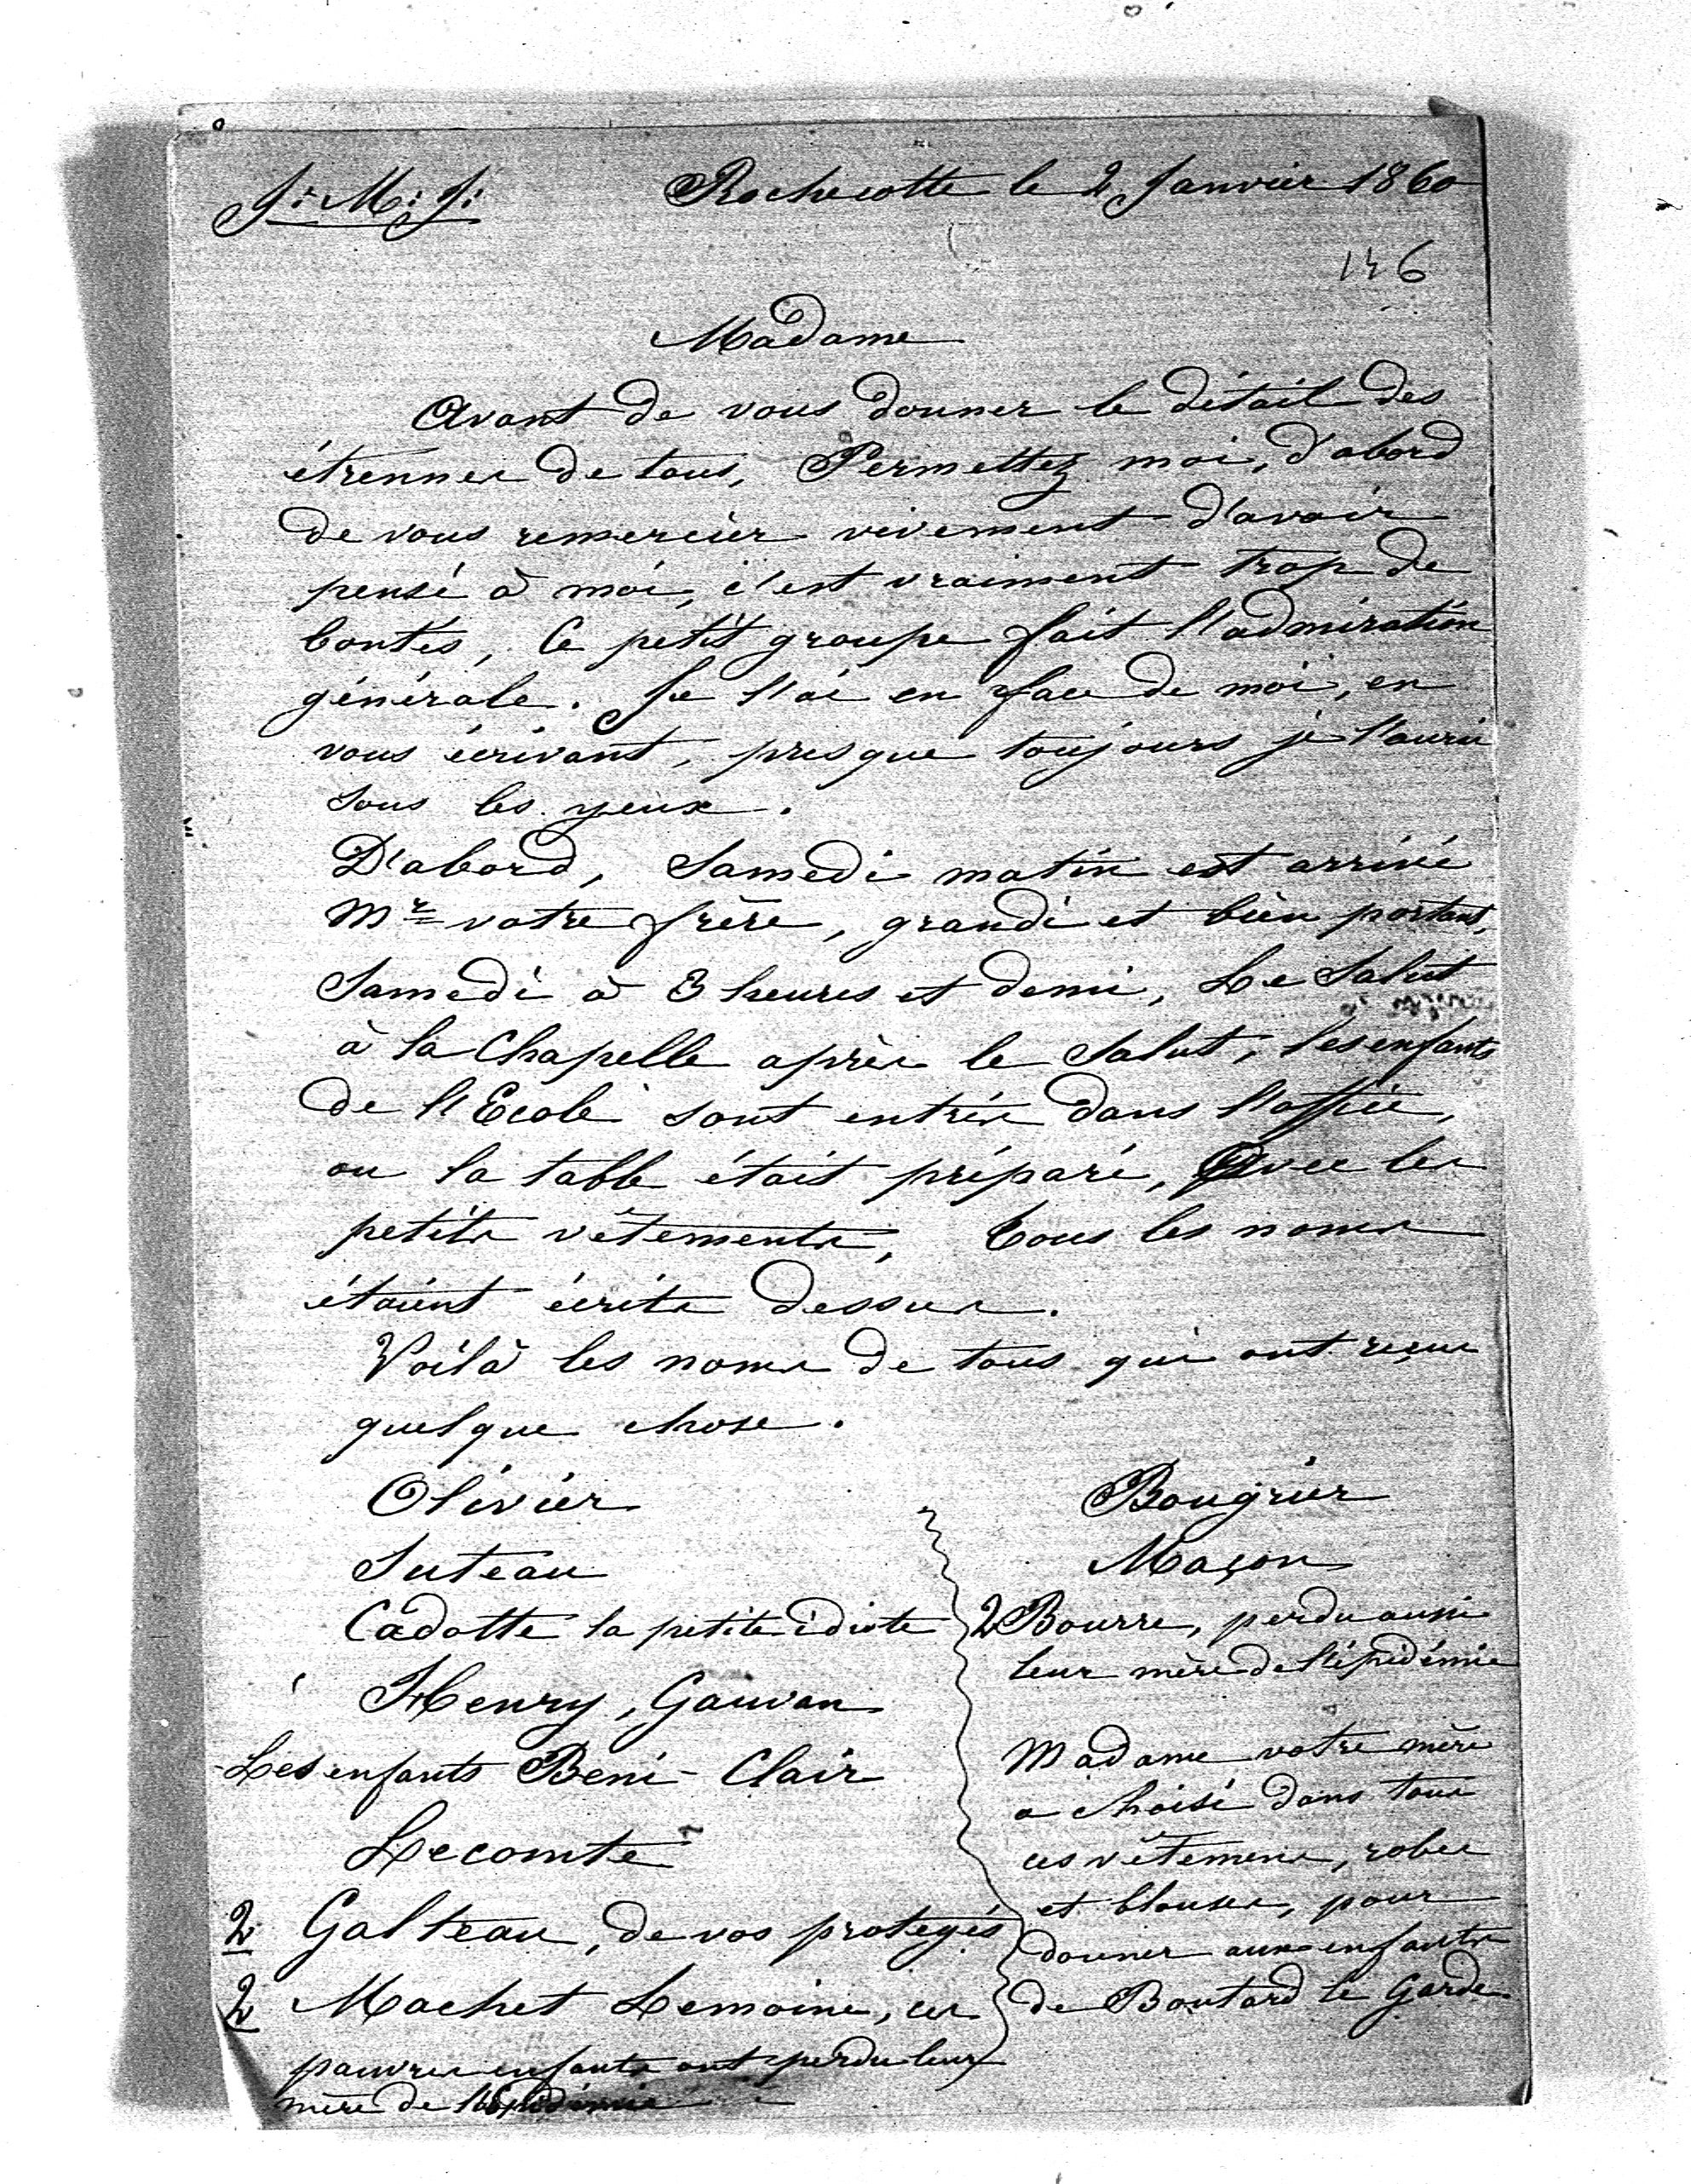 J. M. J.
Rochecotte le 2 Janvier 1860
146
Madame
Avant de vous donner le détail des
étrennes de tous, Permettez moi, d'abord
de vous remercier vivement d'avoir
pensé à moi, c'est vraiment trop de
bontés, Ce petit groupe fait l'admiration
générale. Je l'ai en face de moi, en
vous écrivant, presque toujours je l'aurai
sous les yeux.
D'abord, Samedi matin est arrivé
Mr votre frère, grandi et bien portant,
Samedi à 3 heures et demi, Le Salut
à la Chapelle après le Salut, les enfants
de l'Ecole sont entrés dans l'office,
ou la table était préparé, Avec les
petits vêtements, tous les noms
étaient écrits dessus.
Voilà les noms de tous qui ont reçus
quelque chose.
Olivier
Suteau
Cadotte la petite idiote
Henry, Gauvan
Les enfants Beni-Clair
Lecomte
2 Galteau, de vos protegés
2 Machet Lemoine, ces
pauvres enfants ont perdu leur
mère de l'Epidémie
Bougrier
Maçon
2 Bourre, perdu aussi
leur mère de l'épidémie
Madame votre mère
a choisi dans tous
ces vêtemens, robes
et blouses, pour
donner aux enfants
de Boutard le Garde